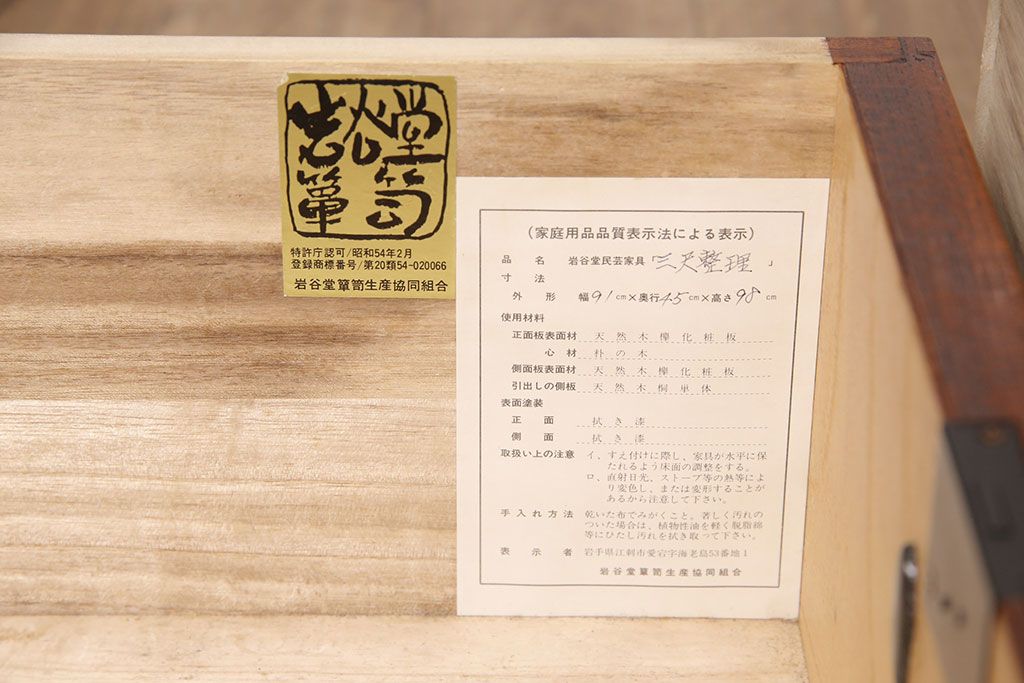 岩谷堂
簞笥
特許庁認可/昭和54年2月
登録商標番号/第20類54-020066
岩谷堂簞笥生産協同組合
(家庭用品品質表示法による表示)
品名 岩谷堂民芸家具 三尺整理
寸法
外形 幅91cm×奥行45cm×高さ98cm
使用材料
正面板表面材 天然木欅化粧板
心材 朴の木
側面板表面材 天然木欅化粧板
引出しの側板 天然木桐単体
表面塗装
正面 拭き漆
側面 拭き漆
取扱い上の注意 イ、すえ付けに際し、家具が水平に保
たれるよう床面の調整をする。
ロ、直射日光、ストーブ等の熱等によ
り変色し、または変形することが
あるから注意して下さい。
手入れ方法 乾いた布でみがくこと。著しく汚れの
ついた場合は、植物性油を軽く脱脂綿
等にひたし汚れを拭き取って下さい。
表示者 岩手県江刺市愛宕字海老島53番地1
岩谷堂簞笥生産協同組合